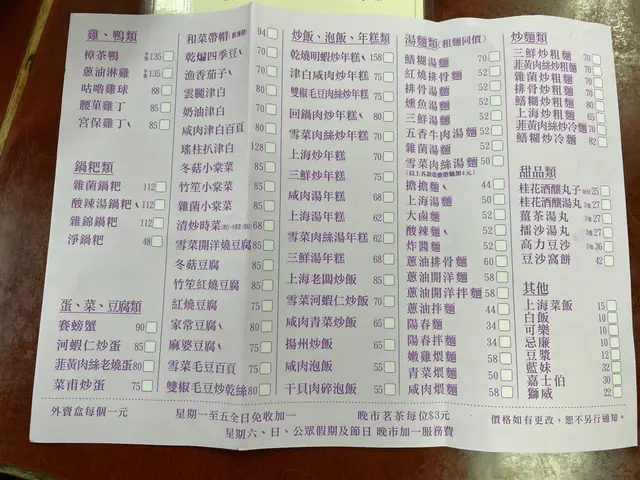 雞、鴨類
樟茶鴨 半隻135
蔥油淋雞 半隻135
咕嚕雞球 88
腰菓雞丁 85
宮保雞丁 85
鍋粑類
雜菌鍋粑 112
酸辣湯鍋粑 112
雜錦鍋粑 112
淨鍋粑 48
蛋、菜、豆腐類
賽螃蟹 90
河蝦仁炒蛋 85
韮黃肉絲老燒蛋 80
菜甫炒蛋 75
和菜帶帽 94
乾煸四季豆 70
漁香茄子 70
雲腿津白 80
奶油津白 70
咸肉津白百頁 80
瑤柱扒津白 128
冬菇小棠菜 85
竹笙小棠菜 85
雜菌小棠菜 85
清炒時菜 68
雪菜開洋燒豆腐 85
冬菇豆腐 85
竹笙紅燒豆腐 85
紅燒豆腐 75
家常豆腐 80
麻婆豆腐 75
雪菜毛豆百頁 75
雙椒毛豆炒乾絲 80
炒飯、泡飯、年糕類
乾燒明蝦炒年糕 158
津白咸肉炒年糕 75
雙椒毛豆肉絲炒年糕 80
回鍋肉炒年糕 80
雪菜肉絲炒年糕 70
上海炒年糕 70
三鮮炒年糕 75
咸肉湯年糕 68
上海湯年糕 62
雪菜肉絲湯年糕 62
三鮮湯年糕 68
上海老闆炒飯 85
雪菜河蝦仁炒飯 70
咸肉青菜炒飯 65
揚州炒飯 65
咸肉泡飯 55
干貝肉碎泡飯 55
湯麵類(粗麵同價)
鱔糊湯麵 70
紅燒排骨麵 52
排骨湯麵 52
燻魚湯麵 52
三鮮湯麵 52
五香牛肉湯麵 52
雜菌湯麵 52
雪菜肉絲湯麵 50
擔擔麵 44
上海湯麵 50
大鹵麵 52
酸辣麵 52
炸醬麵 52
蔥油排骨麵 60
蔥油開洋湯麵 58
蔥油開洋拌麵 58
蔥油拌麵 44
陽春麵 34
陽春拌麵 34
嫩雞煨麵 58
青菜煨麵 50
咸肉煨麵 58
炒麵類
三鮮炒粗麵 70
韮黃肉絲炒粗麵 70
雜菌炒粗麵 70
排骨炒粗麵 70
鱔糊炒粗麵 80
上海炒粗麵 65
韮黃肉絲炒冷麵 70
鱔糊炒冷麵 82
甜品類
桂花酒釀丸子 每位25
桂花酒釀湯丸 3隻27
薑茶湯丸 3隻27
擂沙湯丸 3隻27
高力豆沙 3隻36
豆沙窩餅 42
其他
上海菜飯 15
白飯 10
可樂 10
忌廉 10
豆漿 12
藍妹 32
嘉士伯 30
獅威 22
外賣盒每個一元 星期一至五全日免收加一 晚市茗茶每位$3元 價格如有更改，恕不另行通知。
星期六、日、公眾假期及節日 晚市加一服務費